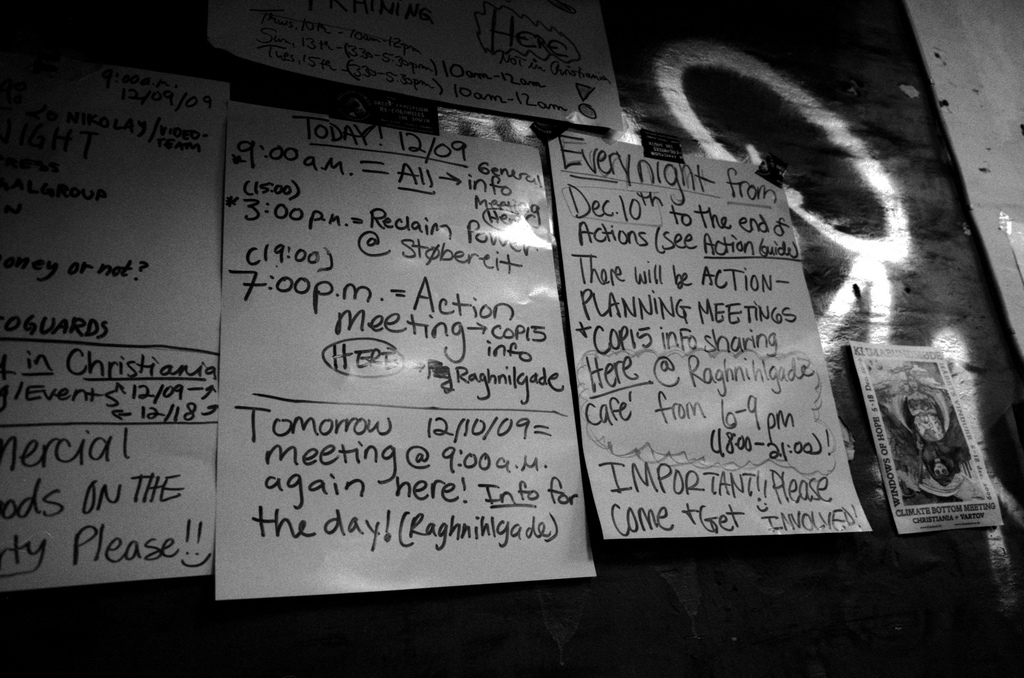 TRAINING
Thurs. 10th - 10am-12pm
Sun. 13th - (330-5:30pm) 10am-12am
Tues. 15th - (330-5:30pm) 10am-12am
HERE
Not in Christiania
!
9:00 a.m.
12/09/09
to NIKOLAY/VIDEO-
TEAM
NIGHT
RESS
GALGROUP
N
oney or not?
OGUARDS
t in Christiania
g/Event 12/09 →
← 12/18
mercial
ods ON THE
ty Please!!
TODAY! 12/09
* 9:00 a.m. = All → General
info
Meeting
(Here)
(15:00)
* 3:00 p.m. = Reclaim Power
@ Støbereit
(19:00)
7:00 p.m. = Action
meeting → COP15
info
HERE → Raghnilgade
Tomorrow 12/10/09 =
meeting @ 9:00 a.m.
again here! Info for
the day! (Raghnihlgade)
Everynight from
Dec. 10th to the end of
Actions (see Action Guide)
There will be ACTION-
PLANNING MEETINGS
+ COP15 info sharing
Here @ Raghnihlgade
café from 6-9 pm
(18:00-21:00)!
IMPORTANT!! Please
come + Get INVOLVED!
KLIMABUNDMØDE
WINDOWS OF HOPE 5-18 Dec.
CLIMATE BOTTOM MEETING
CHRISTIANIA + VARTOV